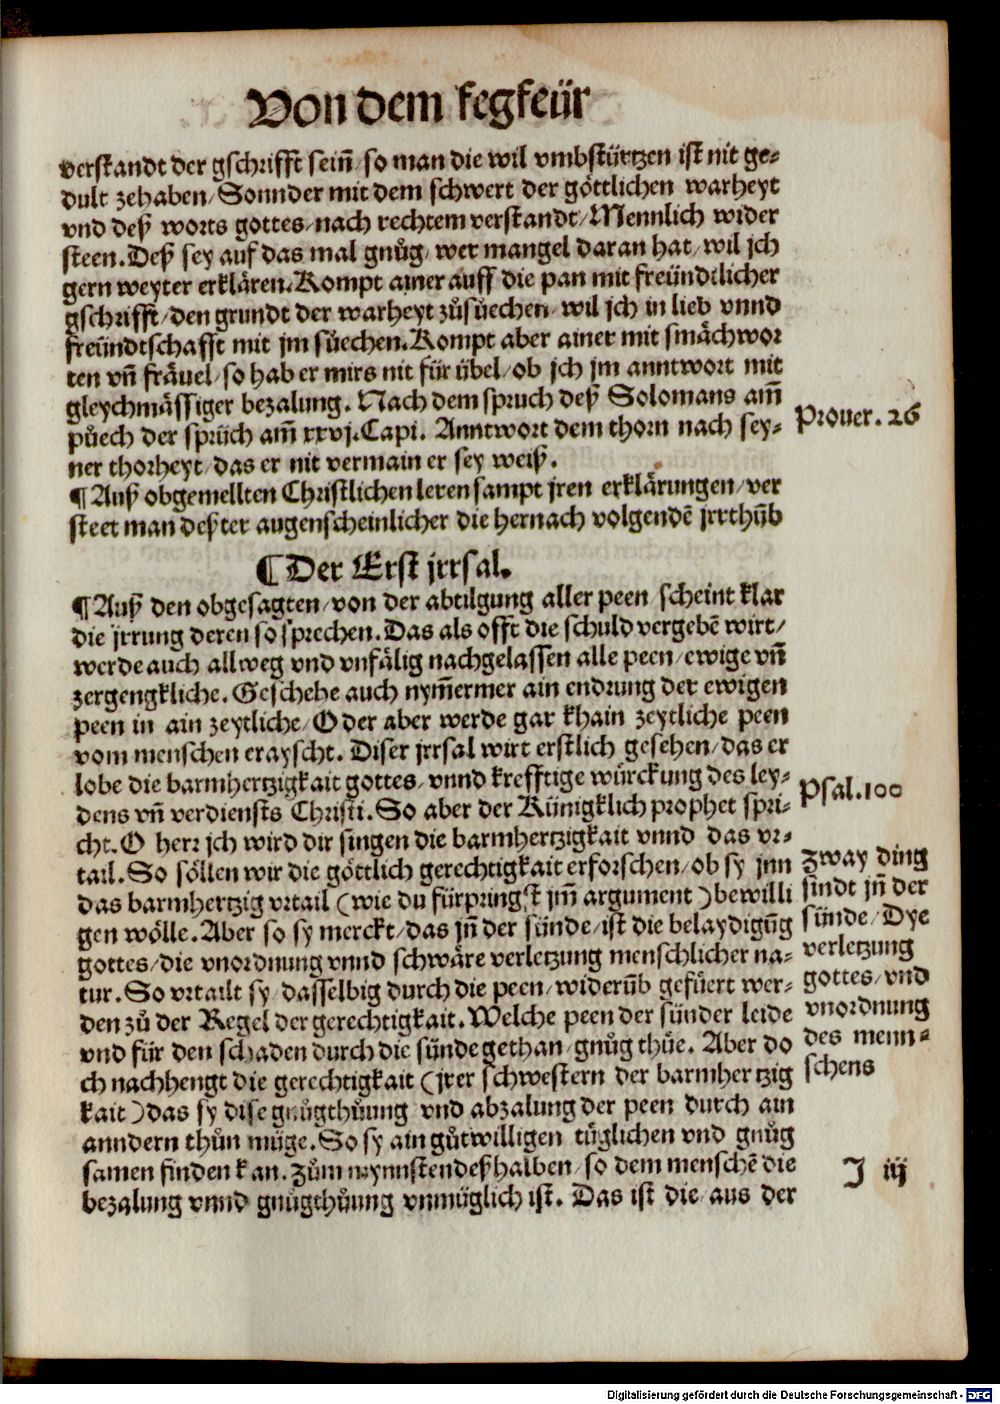 Von dem fegfeür
verstandt der gschrifft seiñ so man die wil vmbstürtzen ist nit ge-
dult zehaben/Sonnder mit dem schwert der göttlichen warheyt
vnd deß worts gottes/nach rechtem verstandt/Mennlich wider
steen.Deß sey auf das mal gnůg/wer mangel daran hat/wil jch
gern weyter erklären.Kompt ainer auff die pan mit freündtlicher
gschrifft/den grundt der warheyt zůsůechen/wil jch in lieb vnnd
freündtschafft mit jm sůechen.Kompt aber ainer mit smächwor
ten vñ fräuel/so hab er mirs nit für übel/ob jch jm anntwort mit
gleychmässiger bezalung. Nach dem spruch deß Solomans am̃
půech der sprüch am̃ xxvj.Capi. Anntwort dem thorn nach sey-
Prouer. 26
ner thorheyt/das er nit vermain er sey weiß.
¶Auß obgemellten Christlichen leren sampt jren erklärungen/ver
steet man deßter augenscheinlicher die hernach volgendẽ jrrthũb
¶Der Erst jrrsal.
¶Auß den obgesagten/von der abtilgung aller peen scheint klar
die jrrung deren so sprechen.Das als offt die schuld vergebẽ wirt/
werde auch allweg vnd vnfälig nachgelassen alle peen/ewige vñ
zergengkliche.Geschehe auch nym̃ermer ain endrung der ewigen
peen in ain zeytliche/Oder aber werde gar khain zeytliche peen
vom menschen erayscht. Diser jrrsal wirt erstlich gesehen/das er
lobe die barmhertzigkait gottes/vnnd krefftige würckung des ley-
dens vñ verdiensts Christi.So aber der Künigklich prophet spri-
Psal.100
cht.O herr jch wird dir singen die barmhertzigkait vnnd das vr-
tail.So söllen wir die göttlich gerechtigkait erforschen/ob sy jnn
das barmhertzig vrtail (wie du fürpringst jm̃ argument)bewilli
gen wölle.Aber so sy merckt/das jñ der sünde/ist die belaydigũg
gottes/die vnordnung vnnd schwäre verletzung menschlicher na-
tur.So vrtailt sy/dasselbig durch die peen/widerũb gefüert wer-
den zů der Regel der gerechtigkait.Welche peen der sünder leide
vnd für den schaden durch die sünde gethan/gnůg thüe. Aber do
ch nachhengt die gerechtigkait (jrer schwestern der barmhertzig
kait)das sy dise gnůgthůung vnd abzalung der peen durch ain
anndern thůn müge.So sy ain gůtwilligen tüglichen vnd gnůg
samen finden kan.Zům mynnsten deßhalben/so dem menschẽ die
bezalung vnnd gnůgthůung vnmüglich ist. Das ist die/aus der
Zway ding
sindt jñ der
sünde/Dye
verletzung
gottes/vnd
vnordnung
des menn-
schens
J iij
Digitalisierung gefördert durch die Deutsche Forschungsgemeinschaft - DFG